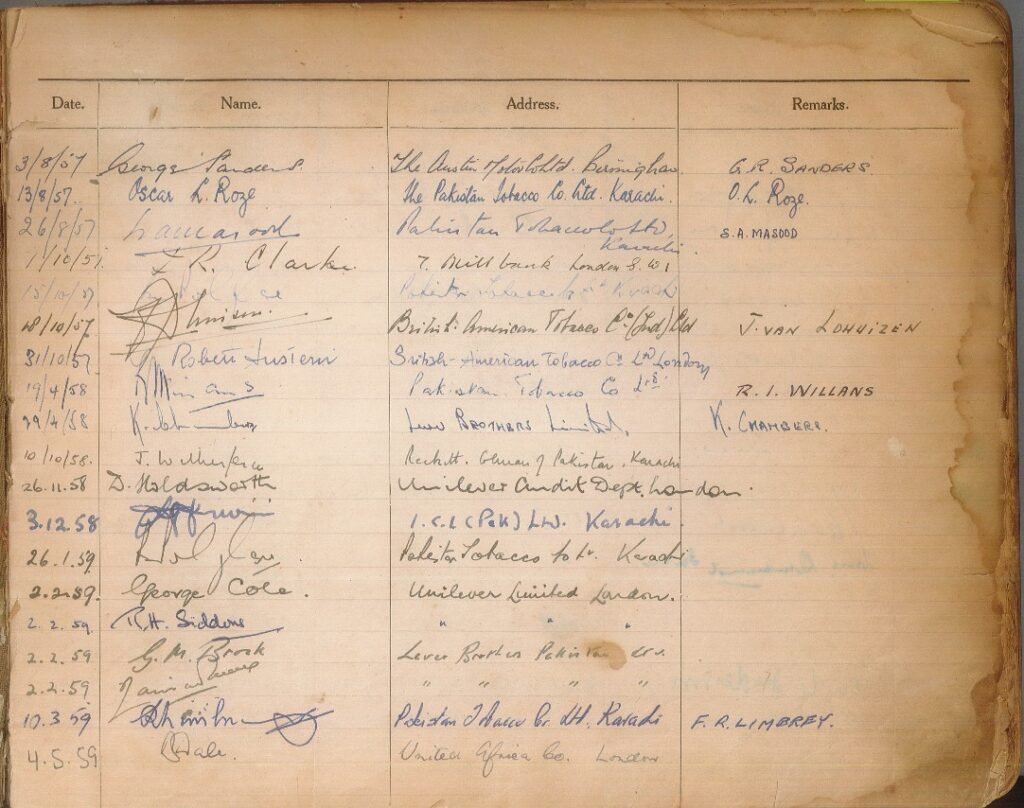 Date. Name. Address. Remarks.
3/8/57 George Sanders The Austin Motor Co Ltd. Birmingham. G.R. SANDERS.
13/8/57. Oscar L. Roze The Pakistan Tobacco Co. Ltd. Karachi. O.L. Roze.
26/8/57 Pakistan Tobacco Co Ltd, S.A. MASOOD
Karachi
1/10/57. R. Clarke. 7. Millbank London S.W1
15/10/57 Pakistan Tobacco Karachi
18/10/57 British American Tobacco Co (Ind) Ltd J. VAN LOHUIZEN
31/10/57 Robert British-American Tobacco Co Ltd London
19/4/58 Pakistan Tobacco Co Ltd R. I. WILLANS
29/4/58 K. Chambers Lever BROTHERS Limited. K. CHAMBERS.
10/10/58. J. Reckitt & Colman of Pakistan. Karachi
26.11.58 D. Holdsworth Unilever Audit Dept. London.
3.12.58 I.C.I (Pak) Ltd. Karachi.
26.1.59 Pakistan Tobacco Co Ltd. Karachi
2.2.59. George Cole. Unilever Limited London.
2.2.59. R.H. Siddons " " "
2.2.59 G.M. Brook Lever Brothers Pakistan Ltd.
2.2.59 " " " "
10.3.59 Pakistan Tobacco Co. Ltd. Karachi F.R. LIMBREY.
4.5.59 Hale. United Africa Co. London